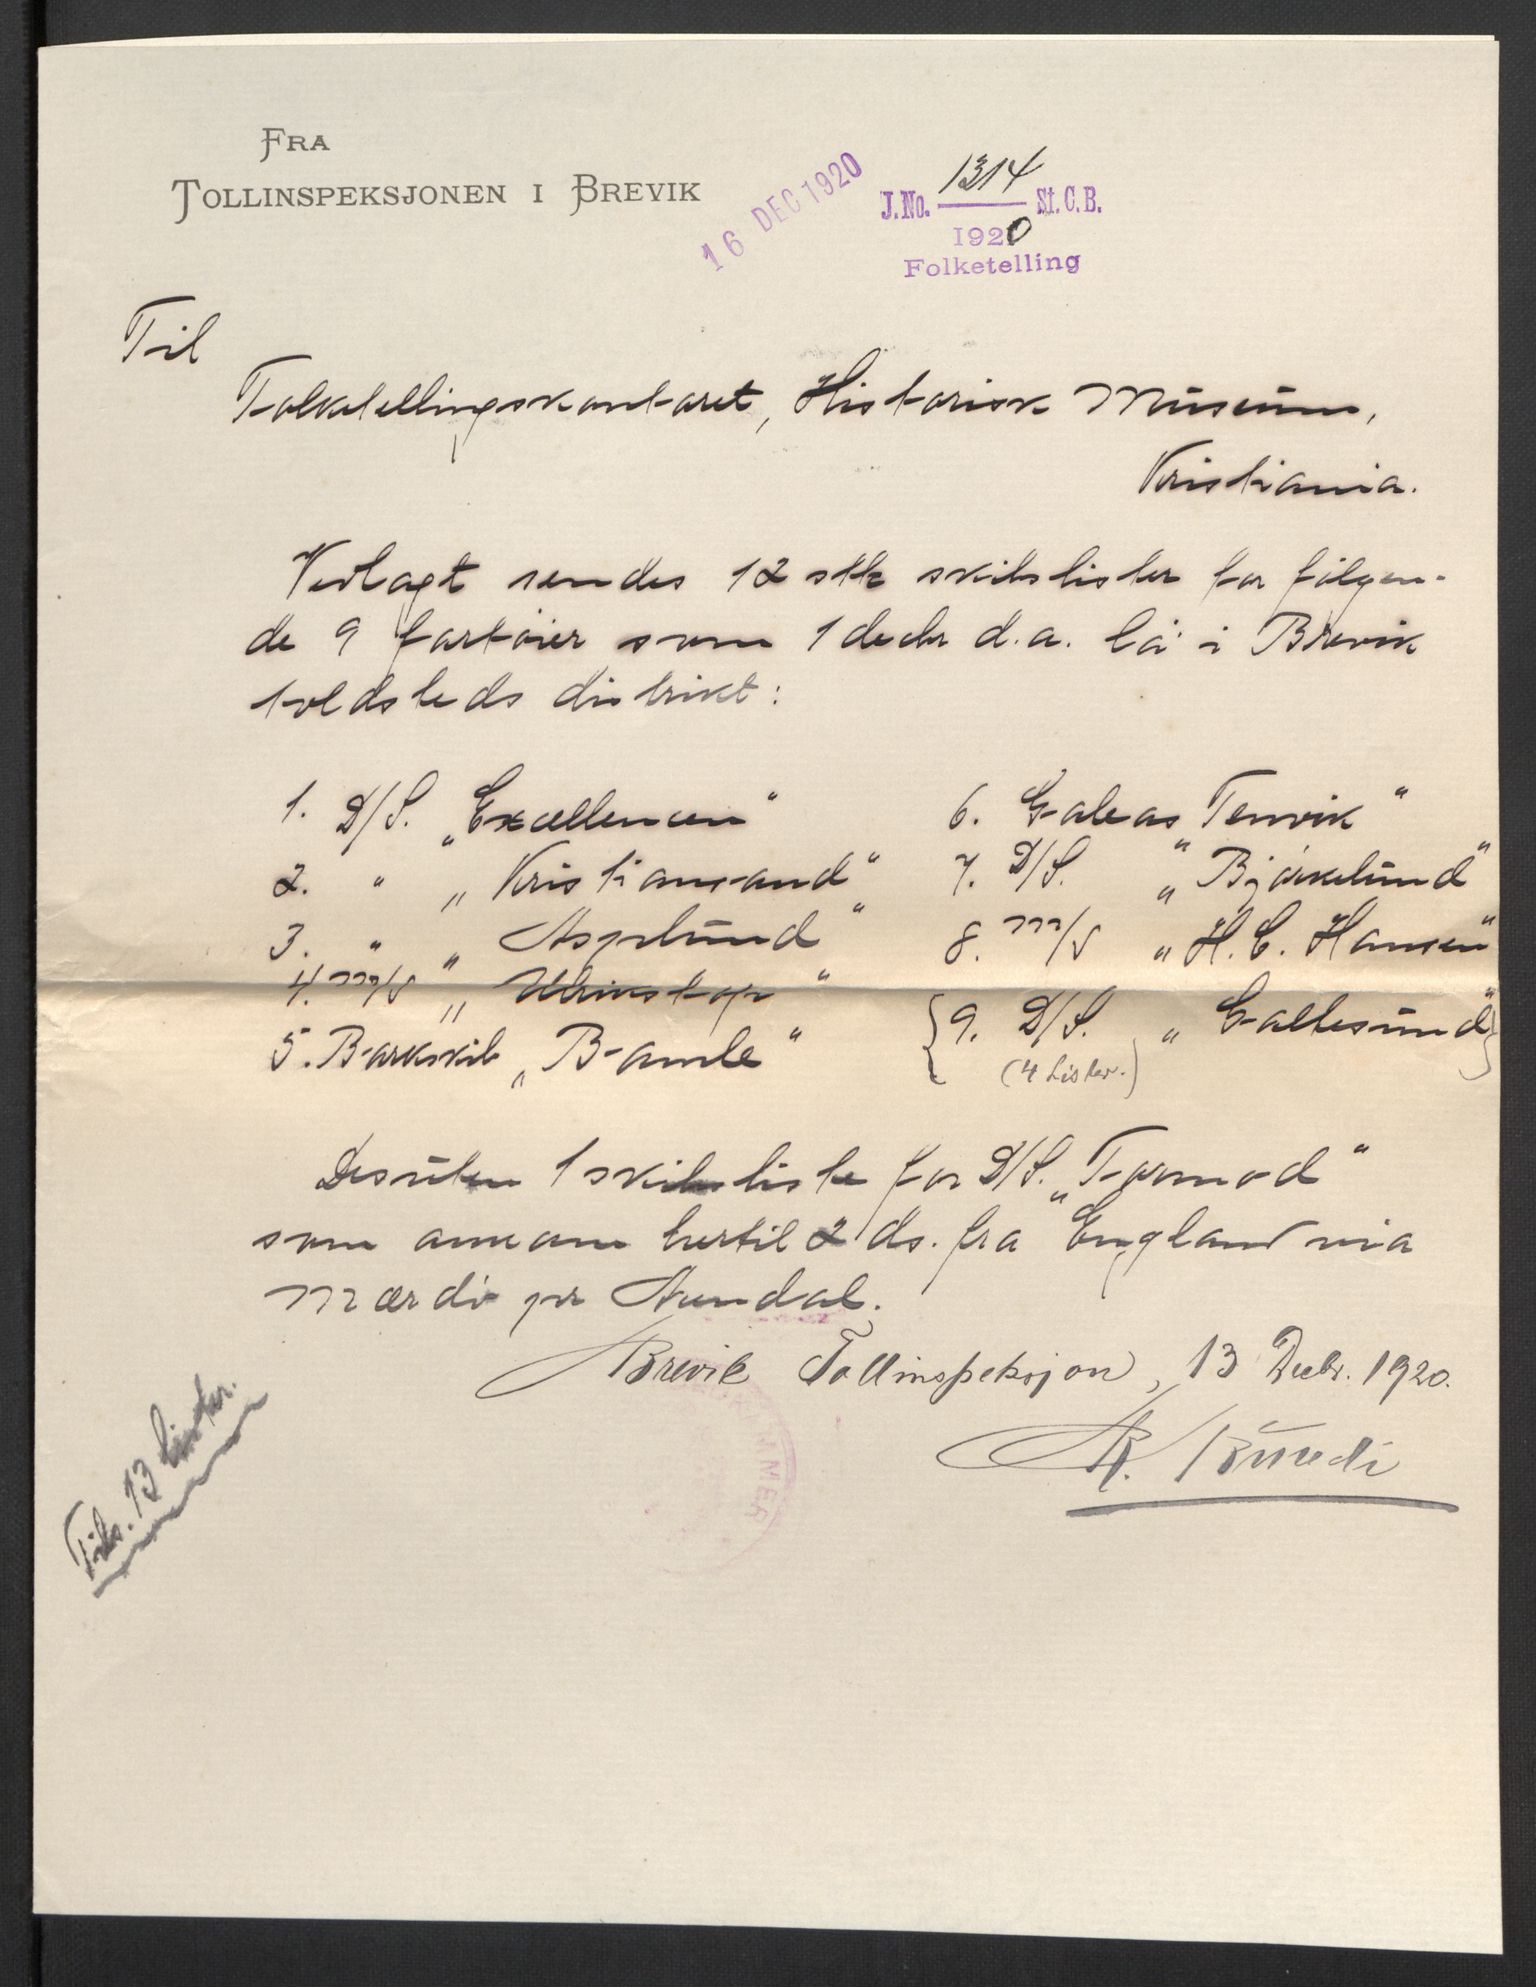 FRA
TOLLINSPEKSJONEN I BREVIK
16 DEC 1920
J.No. 1314 St.C.B.
1920
Folketelling
Til
Folketellingskontoret, Historisk Museum,
Kristiania.
Vedlagt sendes 12 stk skibslister for følgen-
de 9 fartøier som 1 decbr d.a. lå i Brevik
toldsteds distrikt:
1. D/S. „Excellencen"
2. " „Kristiansand"
3. " „Asplund"
4. M/S „Ulrikstop"
5. Barkskib „Bamle"
6. Galeas „Tenvik"
7. D/S. „Bjørkelund"
8. M/S „H.C. Hansen"
{9. D/S. „Gallesund"}
(4 lister.)
Desuten 1 skibsliste for D/S. „Tormod"
som ankom hertil 2 ds. fra England via
Mærdø pr Arendal.
Brevik Tollinspeksjon, 13 Decbr. 1920.
Tils. 13 lister.